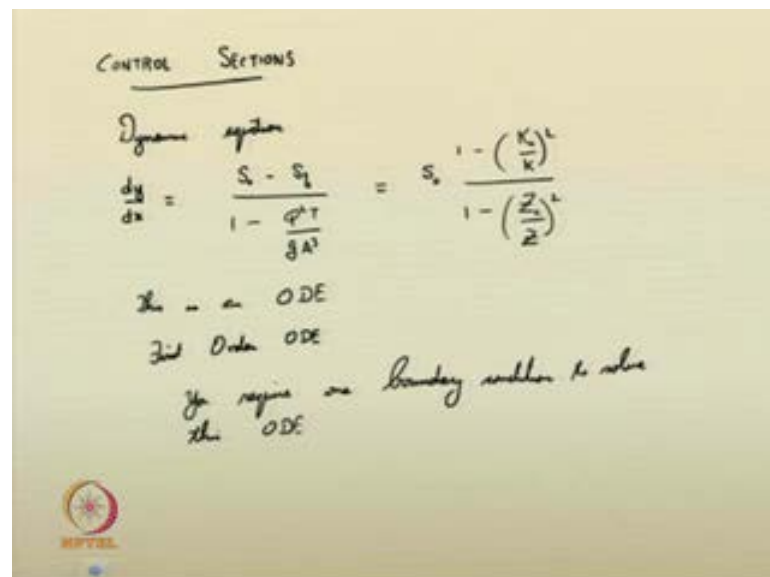 CONTROL SECTIONS
Dynamic equation
dy/dx = (S₀ - S_f) / (1 - Q²T/gA³) = S₀ (1 - (K₀/K)²) / (1 - (Z_c/Z)²)
This is an ODE
First Order ODE
You require one boundary condition to solve
this ODE
NPTEL